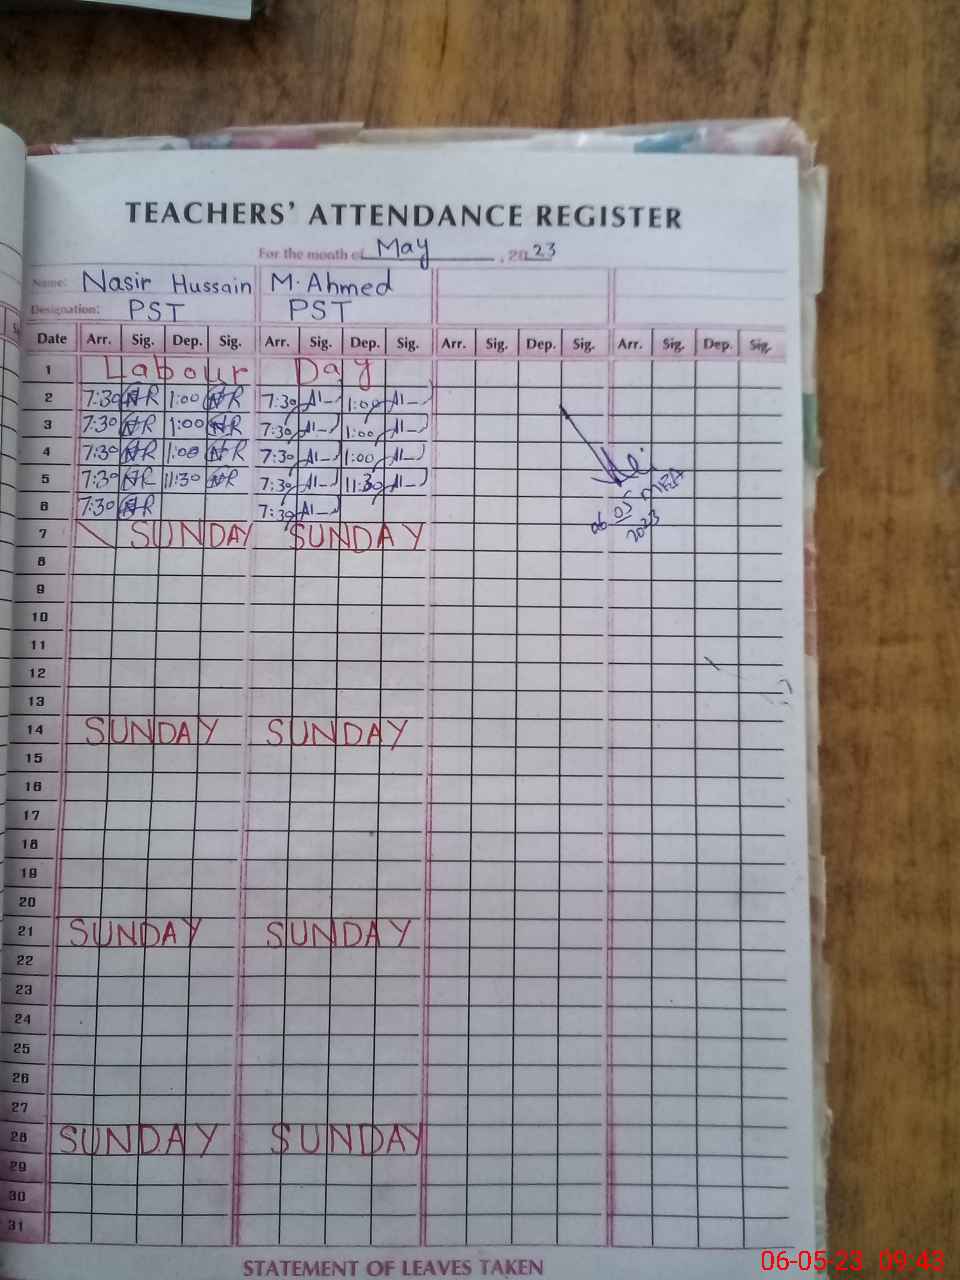 TEACHERS' ATTENDANCE REGISTER
For the month of May, 2023
Name: Nasir Hussain M. Ahmed
Designation: PST PST
Date Arr. Sig. Dep. Sig. Arr. Sig. Dep. Sig. Arr. Sig. Dep. Sig. Arr. Sig. Dep. Sig.
1 Labour Day
2 7:30 NR 1:00 NR 7:30 1:00
3 7:30 NR 1:00 NR 7:30 1:00
4 7:30 NR 1:00 NR 7:30 1:00
5 7:30 NR 11:30 NR 7:30 11:30
6 7:30 NR 7:30
06 05 MEA
2023
7 SUNDAY SUNDAY
8
9
10
11
12
13
14 SUNDAY SUNDAY
15
16
17
18
19
20
21 SUNDAY SUNDAY
22
23
24
25
26
27
28 SUNDAY SUNDAY
29
30
31
STATEMENT OF LEAVES TAKEN
06-05-23 09:43